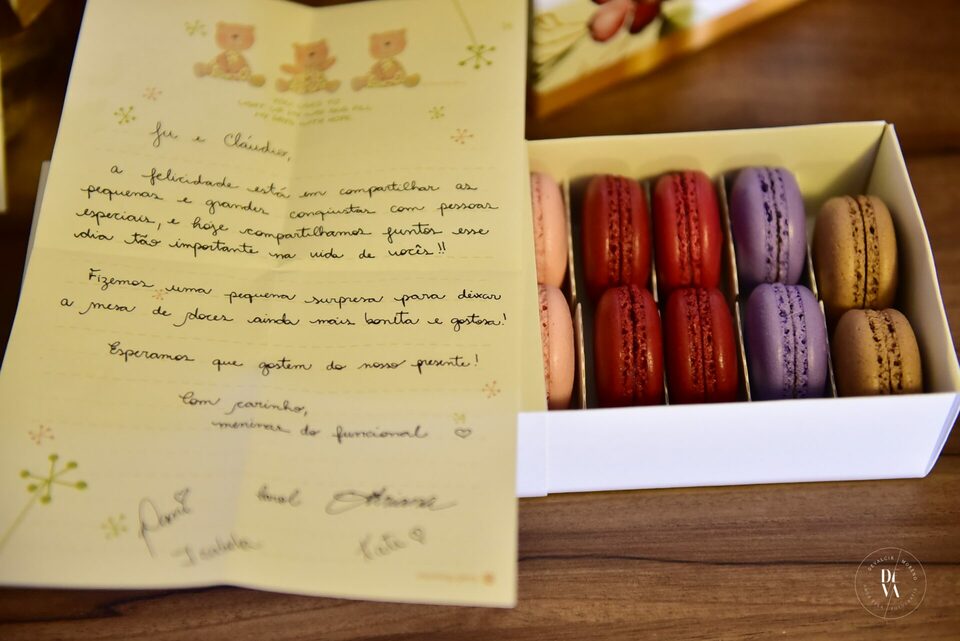 Ju e Cláudio,
a felicidade está em compartilhar as
pequenas e grandes conquistas com pessoas
especiais, e hoje compartilhamos juntos esse
dia tão importante na vida de vocês!!
Fizemos uma pequena surpresa para deixar
a mesa de doces ainda mais bonita e gostosa!
Esperamos que gostem do nosso presente!
Com carinho,
meninas do funcional
Carol
Isabela
Kate
DEVALCIR MORENO
DEVA